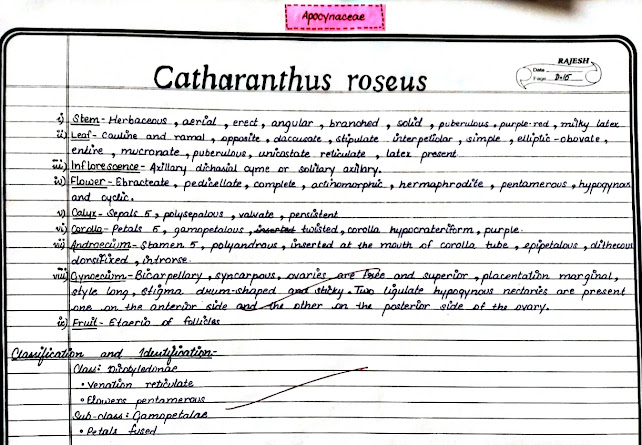 Apocynaceae
RAJESH
Date
Page D-15
Catharanthus roseus
i) Stem - Herbaceous, aerial, erect, angular, branched, solid, puberulous, purple-red, milky latex
ii) Leaf - Cauline and ramal, opposite, decussate, stipulate interpetiolar, simple, elliptic-obovate,
entire, mucronate, puberulous, unicostate reticulate, latex present
iii) Inflorescence - Axillary dichasial cyme or solitary axillary.
iv) Flower - Ebracteate, pedicellate, complete, actinomorphic, hermaphrodite, pentamerous, hypogynous
and cyclic.
v) Calyx - Sepals 5, polysepalous, valvate, persistent
vi) Corolla - Petals 5, gamopetalous, inserted twisted, corolla hypocrateriform, purple.
vii) Androecium - Stamen 5, polyandrous, inserted at the mouth of corolla tube, epipetalous, dithecous
dorsifixed, introrse.
viii) Gynoecium - Bicarpellary, syncarpous, ovaries are free and superior, placentation marginal,
style long, stigma drum-shaped and sticky. Two ligulate hypogynous nectaries are present
one on the anterior side and the other on the posterior side of the ovary.
ix) Fruit - Etaerio of follicles
Classification and Identification:-
Class: Dicotyledonae
• Venation reticulate
• Flowers pentamerous
Sub-class: Gamopetalae
• Petals fused